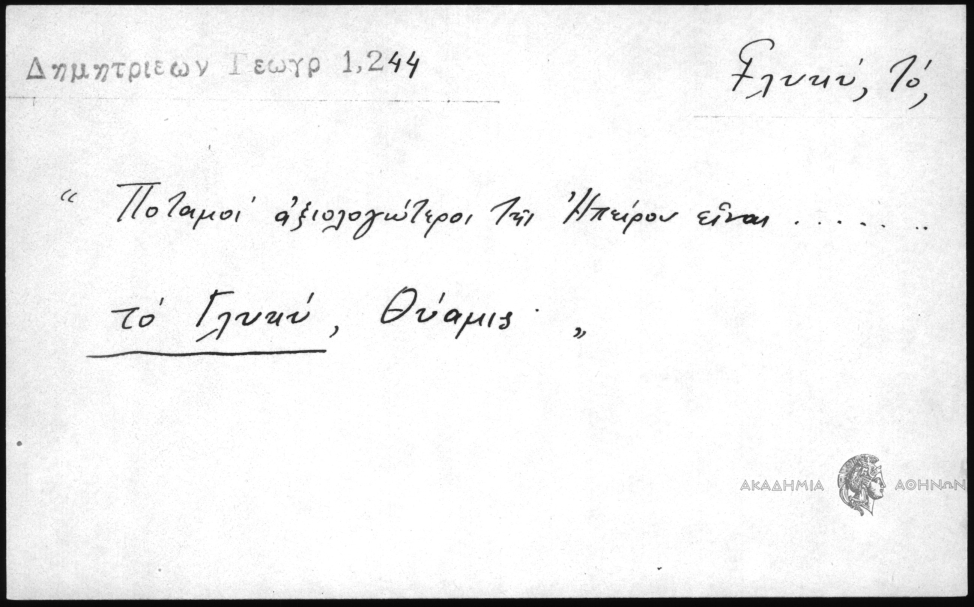 Δημητριεων Γεωγρ 1,244
Γλυκύ, τό,
“ Ποταμοί ἀξιολογώτεροι τῆς Ἠπείρου εἶναι .......
τό Γλυκύ, Θύαμις · „
ΑΚΑΔΗΜΙΑ ΑΘΗΝΩΝ